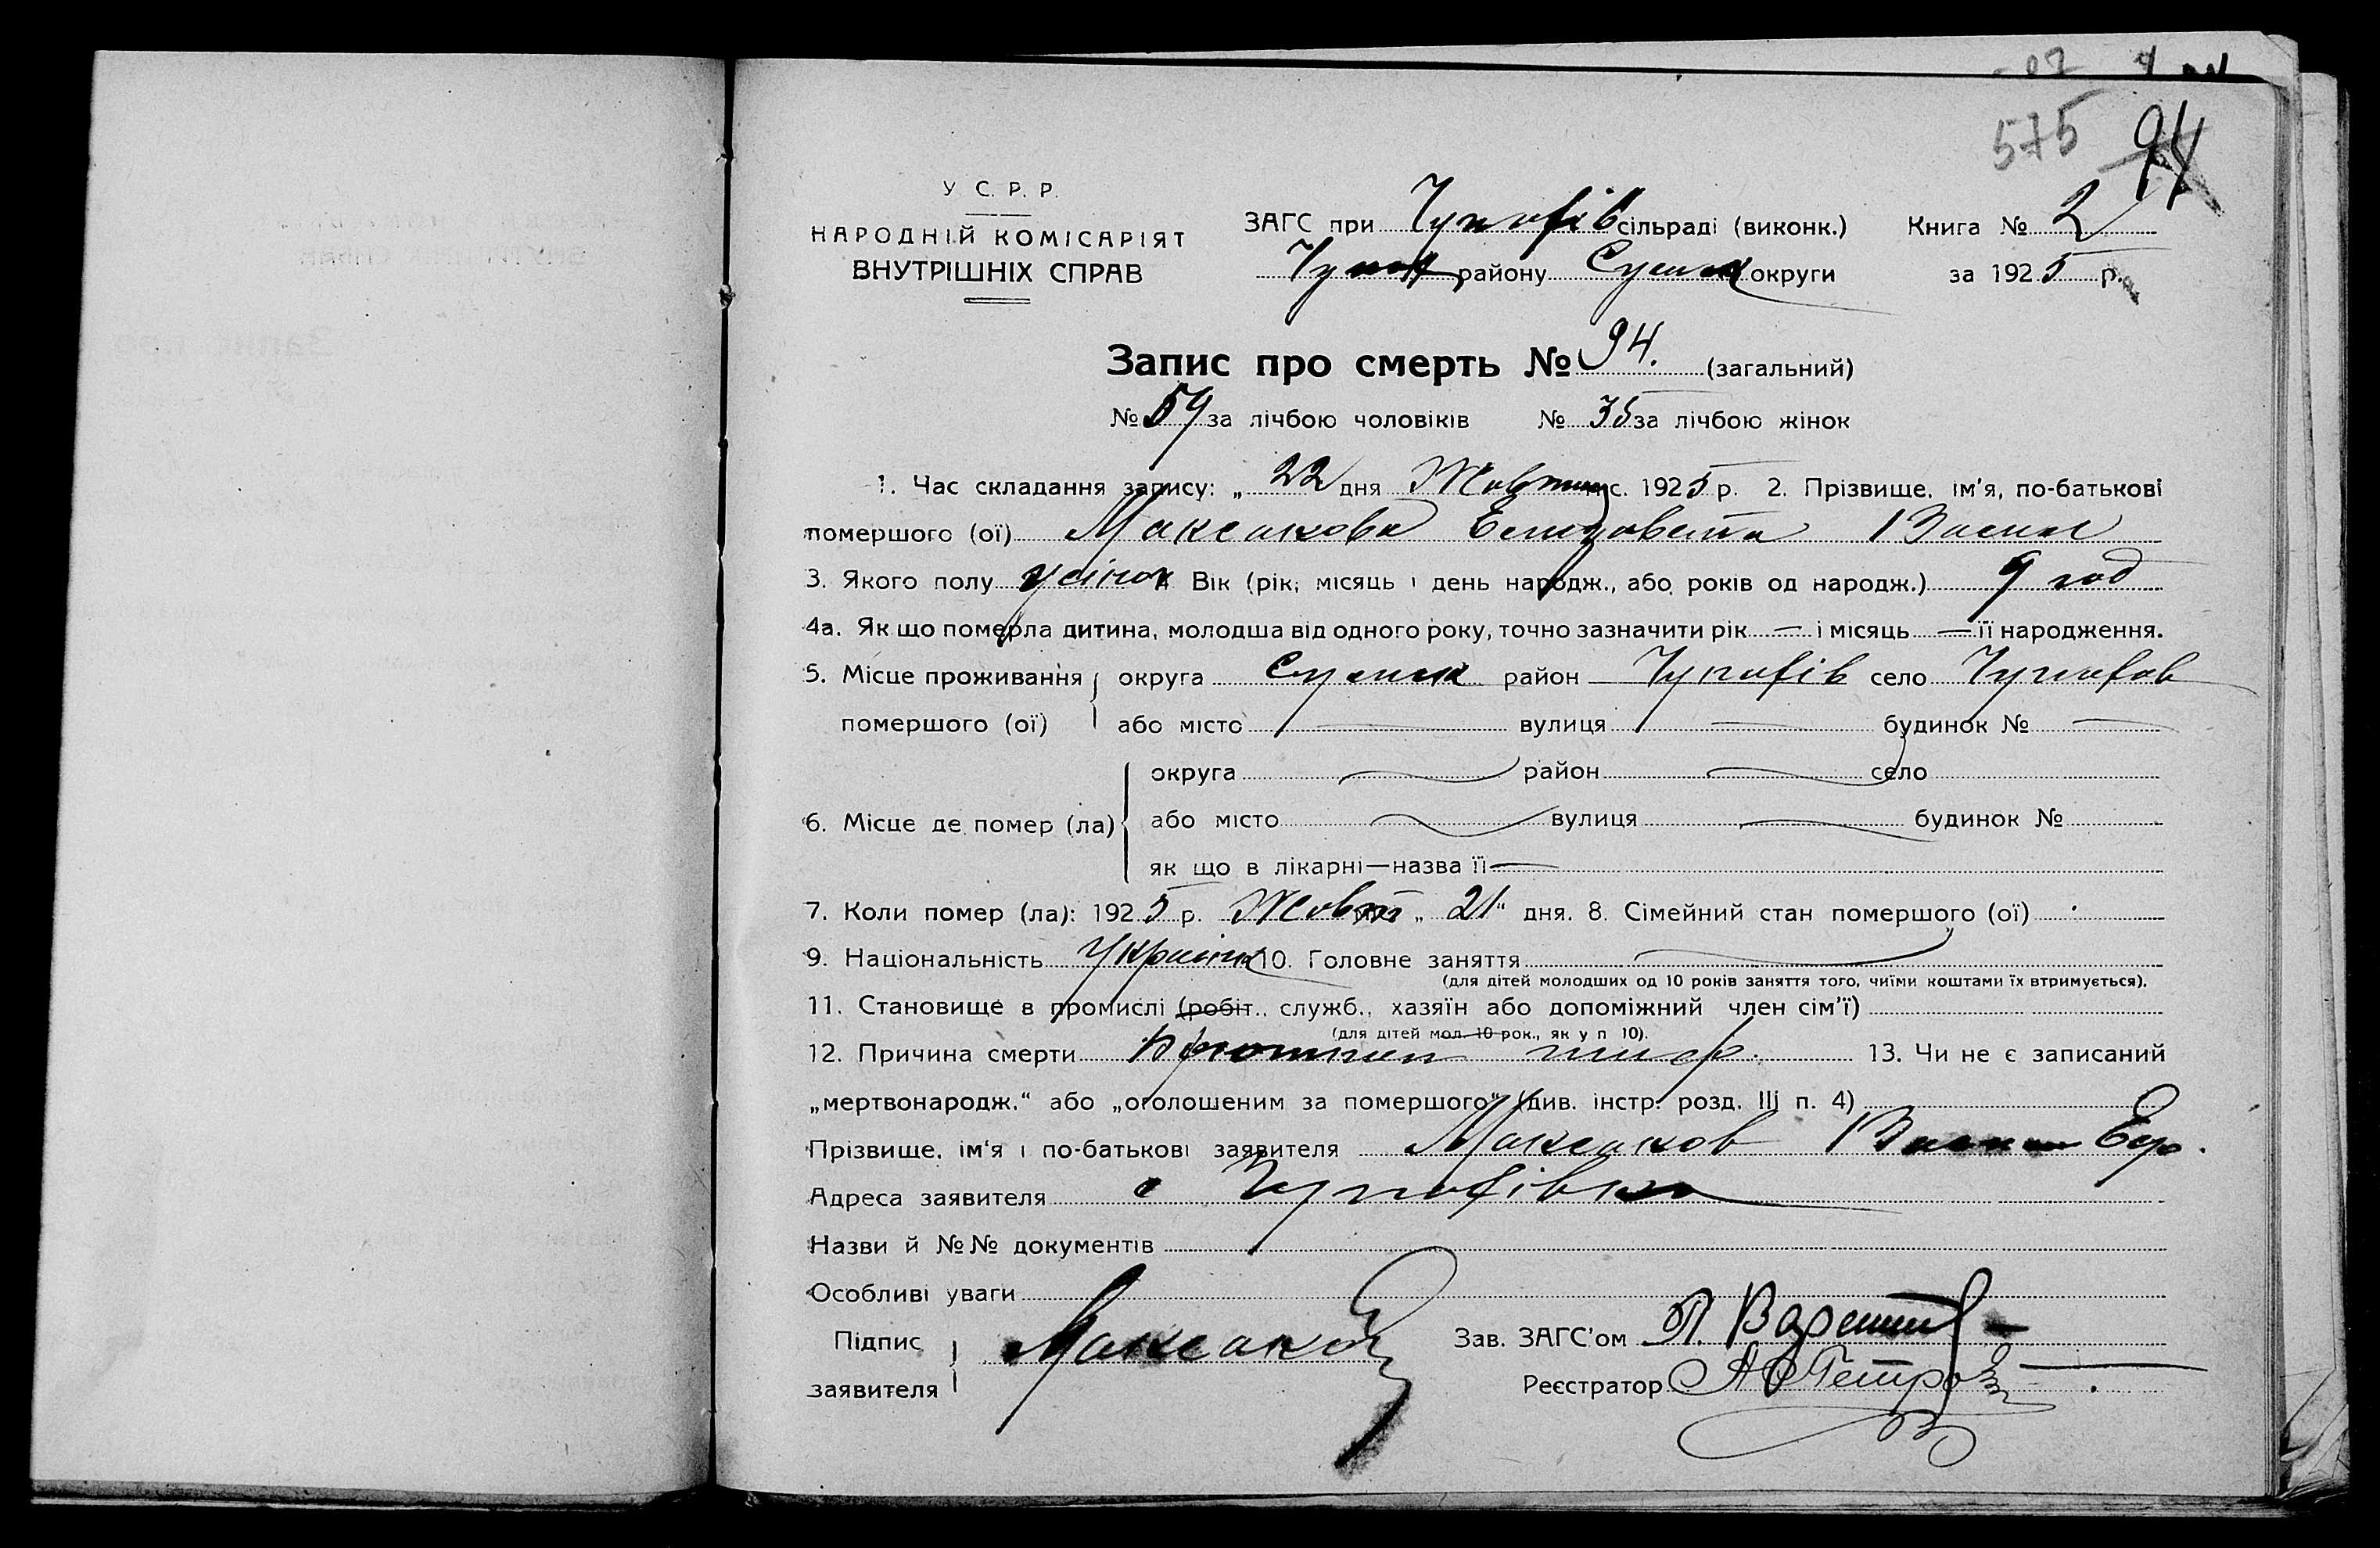 575 94
У С. Р. Р.
НАРОДНІЙ КОМІСАРІЯТ
ВНУТРІШНІХ СПРАВ
ЗАГС при сільраді (виконк.) Книга № 2
району округи за 1925 р.
Запис про смерть № 94. (загальний)
№ 59 за лічбою чоловіків № 35 за лічбою жінок
1. Час складання запису: „ 22 дня 1925 р. 2. Прізвище, ім'я, по-батькові
помершого (ої) Максакова Елизавета Васил
3. Якого полу жіноч Вік (рік, місяць і день народж., або років од народж.) 9 год
4а. Як що померла дитина, молодша від одного року, точно зазначити рік — і місяць — її народження.
5. Місце проживання округа Сумськ район село
помершого (ої) або місто — вулиця — будинок № —
округа — район — село
6. Місце де помер (ла) або місто — вулиця — будинок №
як що в лікарні—назва її —
7. Коли помер (ла): 1925 р. Жовт „ 21" дня. 8. Сімейний стан помершого (ої)
9. Національність 10. Головне заняття —
(для дітей молодших од 10 років заняття того, чиїми коштами їх втримується).
11. Становище в промислі (робіт., служб., хазяїн або допоміжний член сім'ї)
(для дітей мол. 10 рок., як у п 10).
12. Причина смерти тиф. 13. Чи не є записаний
„мертвонародж." або „оголошеним за помершого" (див. інстр. розд. III п. 4)
Прізвище, ім'я і по-батькові заявителя Максаков Васил Ег.
Адреса заявителя с
Назви й №№ документів
Особливі уваги
Підпис Максаков Зав. ЗАГС'ом
заявителя Реєстратор